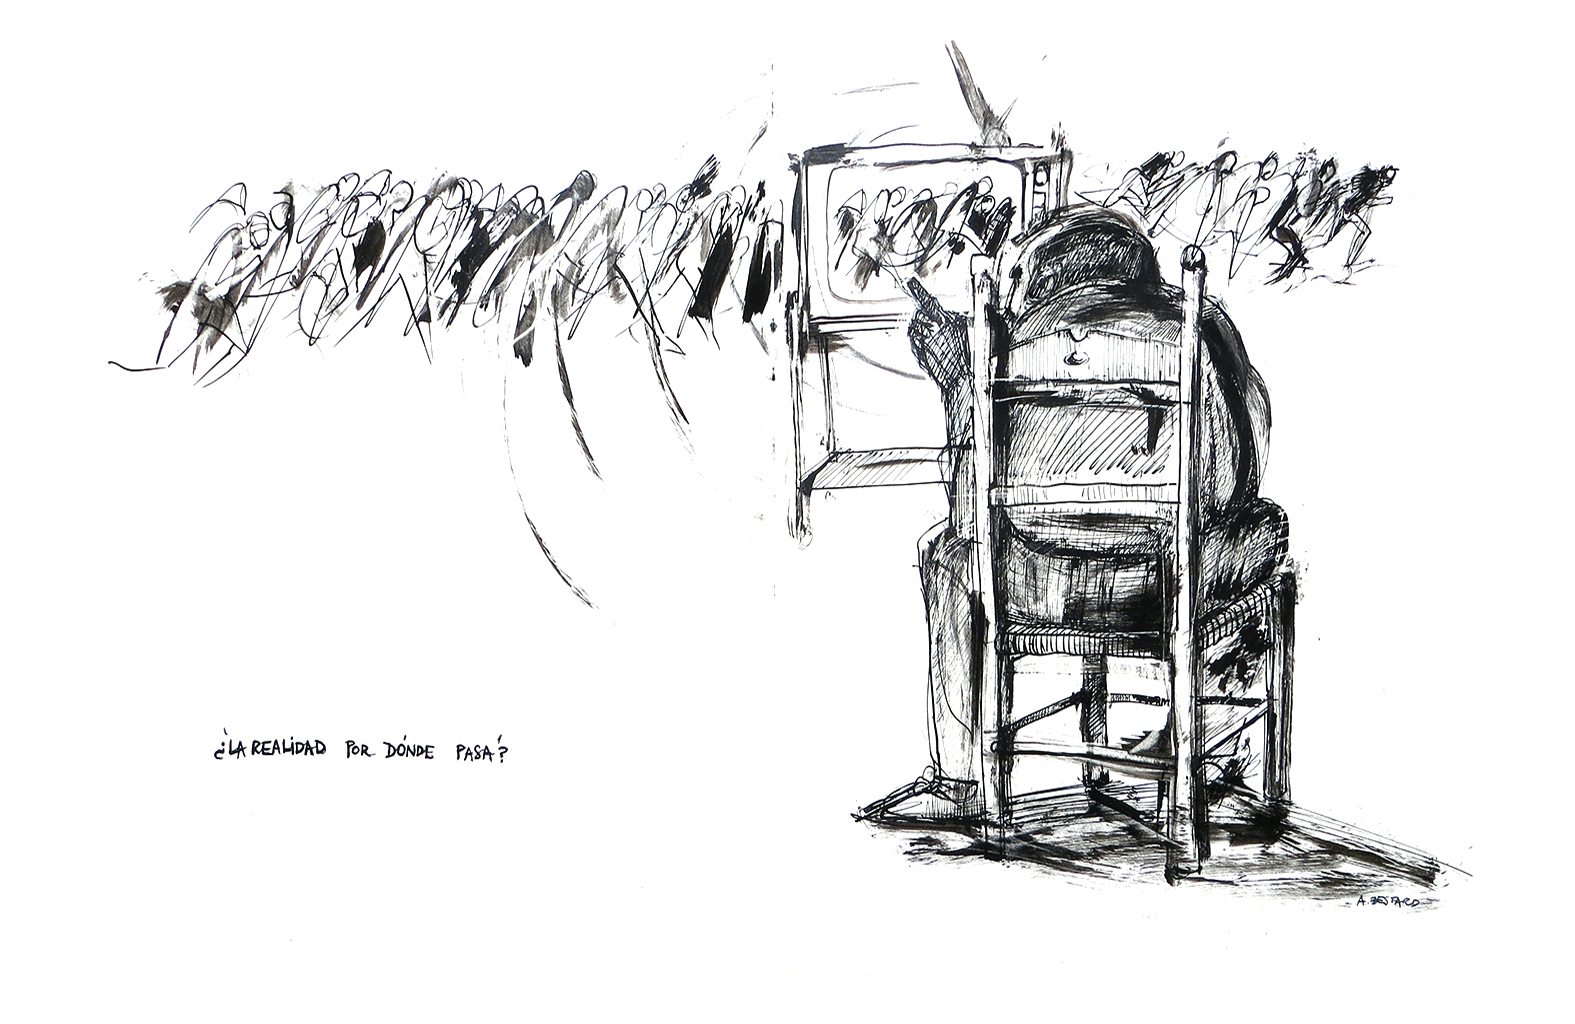 ¿LA REALIDAD POR DÓNDE PASA?
A. BESTARD